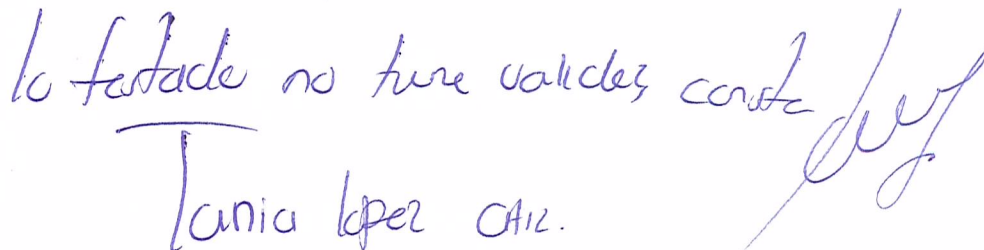 lo testado no tiene validez, consta
Tania lopez CAIZ.